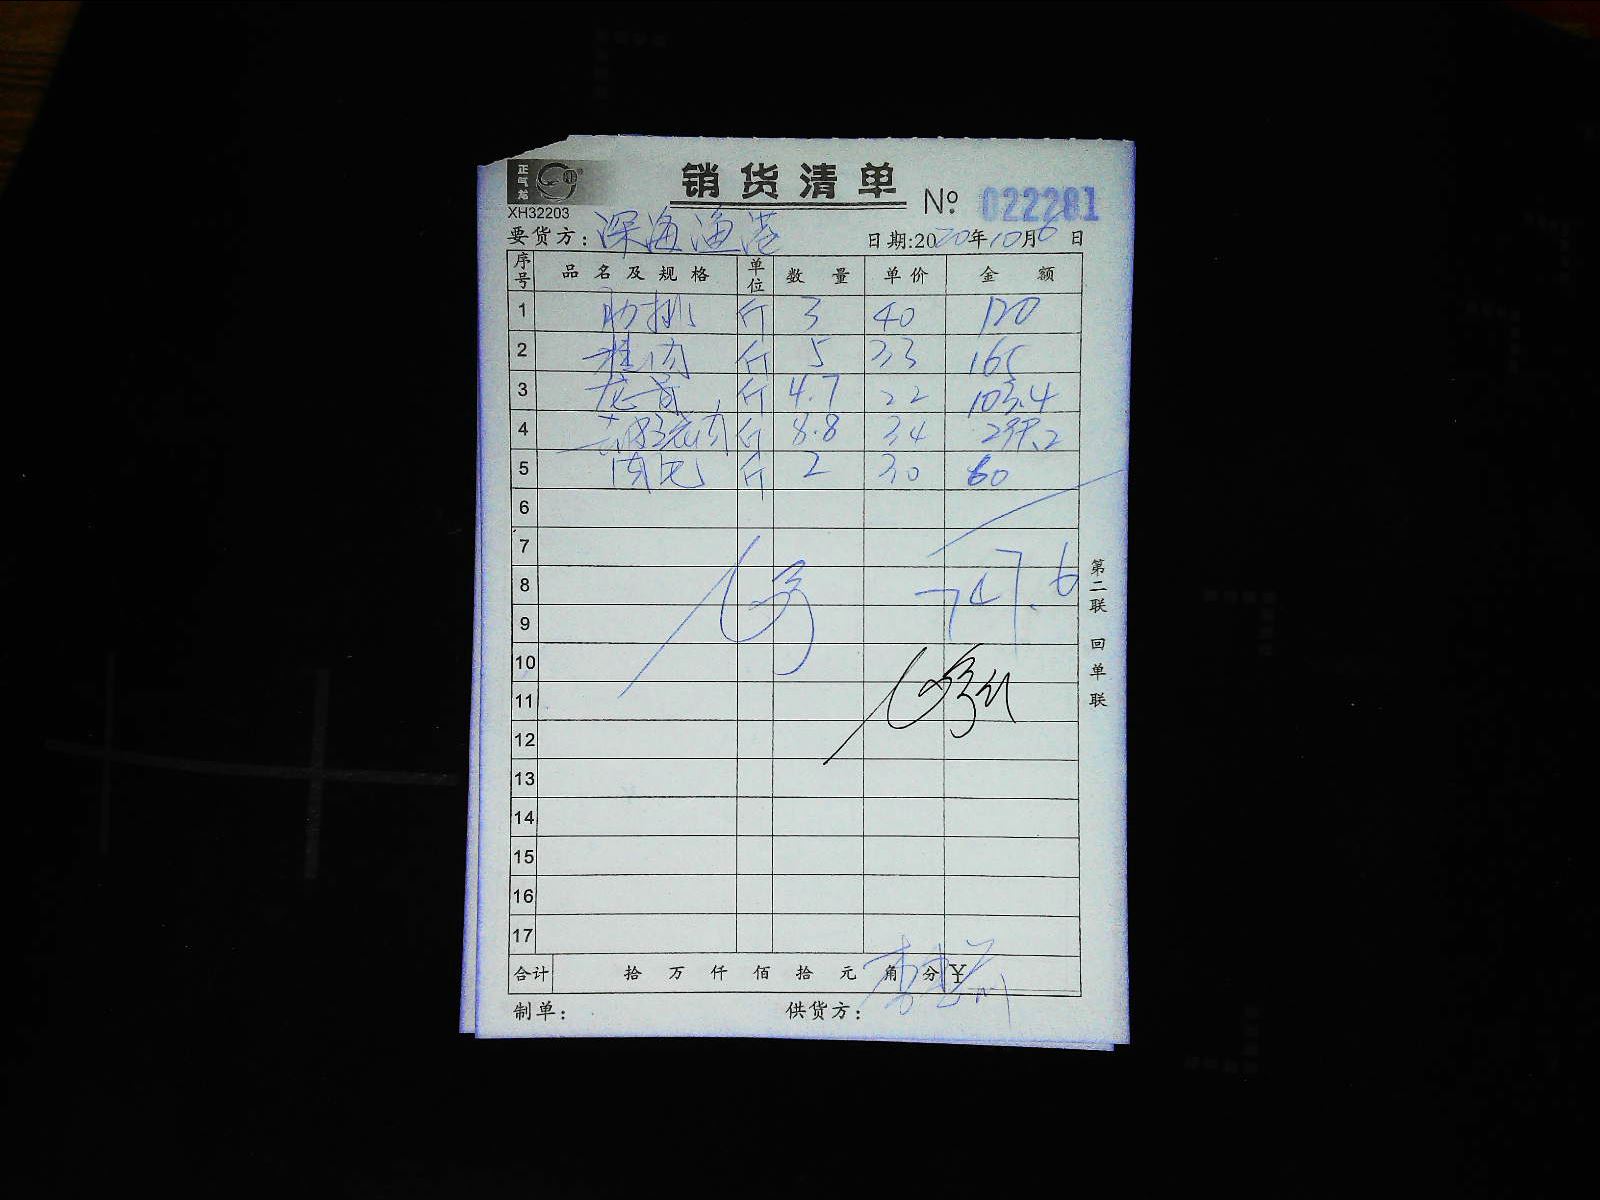 正气龙
销货清单
XH32203
№ 022281
要货方：深海渔港 日期:2020年10月6日
序号 品名及规格 单位 数量 单价 金额
1 肋排 斤 3 40 120
2 斤 5 33 165
3 龙骨 斤 4.7 22 103.4
4 斤 8.8 34 299.2
5 斤 2 30 60
6
7
8 747.6
9
10
11
12
13
14
15
16
17
合计 拾万仟佰拾元角分 ¥
制单： 供货方：
第二联 回单联